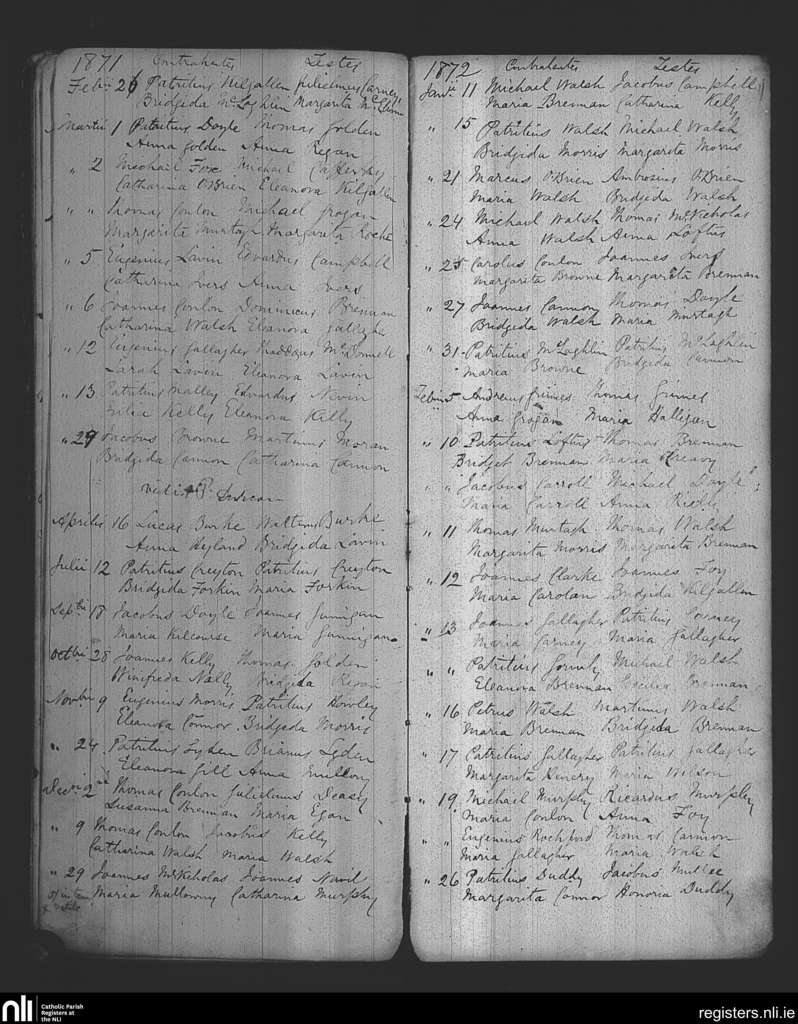 1871 Contrahentes Testes
Feb 26 Patritius Kilgallen Julielmus Carney
Bridgida McLoghlin Margarita
Martii 1 Patritius Doyle Thomas Golden
Anna Golden Anna Regan
" 2 Michail Fox Michail Cafferky
Catharina O'Brien Eleanora Kilgallen
" " Thomas Conlon Michael Grogan
Margarita Murtagh Margarita Roche
" 5 Eugenius Lavin Edvardus Campbell
Catharina Ivers Anna Ivers
" 6 Joannes Conlon Dominicus Brennan
Catharina Walsh Eleanora Gallagher
" 12 Eugenius Gallagher Thaddaus McDonnell
Sarah Lavin Eleanora Lavin
" 13 Patritius Malley Edvardus Nevin
Kelly Eleanora Kelly
" 29 Jacobus Browne Martinus Moran
Bridgida Cannon Catharina Cannon
Aprilis 16 Lucas Burke Walterus Burke
Anna Hyland Bridgida Lavin
Julii 12 Patritius Creyton Patritius Creyton
Bridgida Forkin Maria Forkin
Septbri 18 Jacobus Doyle Joannes
Maria Kilcourse Maria
Octbri 28 Joannes Kelly Thomas Golden
Winifreda Nally Bridgida
Novbri 9 Eugenius Morris Patritius Howley
Eleanora Connor Bridgida Morris
" 24 Patritius Lyden Brianus Lyden
Eleanora Gill Anna
Decri 2nd Thomas Conlon Julielmus Deasy
Susanna Brennan Maria Egan
" 9 Thomas Conlon Jacobus Kelly
Catharina Walsh Maria Walsh
" 29 Joannes McNicholas Joannes
Maria Mullowny Catharina Murphy
1872 Contrahentes Testes
Janri 11 Michael Walsh Jacobus Campbell
Maria Brennan Catharina Kelly
" 15 Patritius Walsh Michael Walsh
Bridgida Morris Margareta Morris
" 21 Marcus O'Brien Ambrosius O'Brien
Maria Walsh Bridgida Walsh
" 24 Michael Walsh Thomas McNicholas
Anna Walsh Anna Loftus
" 25 Carolus Conlon Joannes Ivers
Margarita Browne Margarita Brennan
" 27 Joannes Cannon Thomas Doyle
Bridgida Walsh Maria Murtagh
" 31 Patritius McLoghlin Patritius McLaghlin
Maria Browne Bridgida Cannon
Febri 5 Andreas Grimes Thomas Grimes
Anna Grogan Maria Halligan
" 10 Patritius Loftus Thomas Brennan
Bridget Brennan Maria Creavy
" " Jacobus Carroll Michael Doyle
Maria Carroll Anna
" 11 Thomas Murtagh Thomas Walsh
Margarita Morris Margarita Brennan
" 12 Joannes Clarke Joannes Foy
Maria Carolan Bridgida Kilgallen
" 13 Joannes Gallagher Patritius
Maria Carney Maria Gallagher
" " Patritius Michail Walsh
Eleanora Brennan Cecilia Brennan
" 16 Petrus Walsh Martinus Walsh
Maria Brennan Bridgida Brennan
" 17 Patritius Gallagher Patritius Gallagher
Margarita Henery Maria Wilson
" 19 Michail Murphy Ricardus Murphy
Maria Conlon Anna Foy
" " Eugenius Rochford Thomas Cannon
Maria Gallagher Maria Walsh
" 26 Patritius Duddy Jacobus
Margarita Connor Honoria Duddy
nli
Catholic Parish
Registers at
the NLI
registers.nli.ie